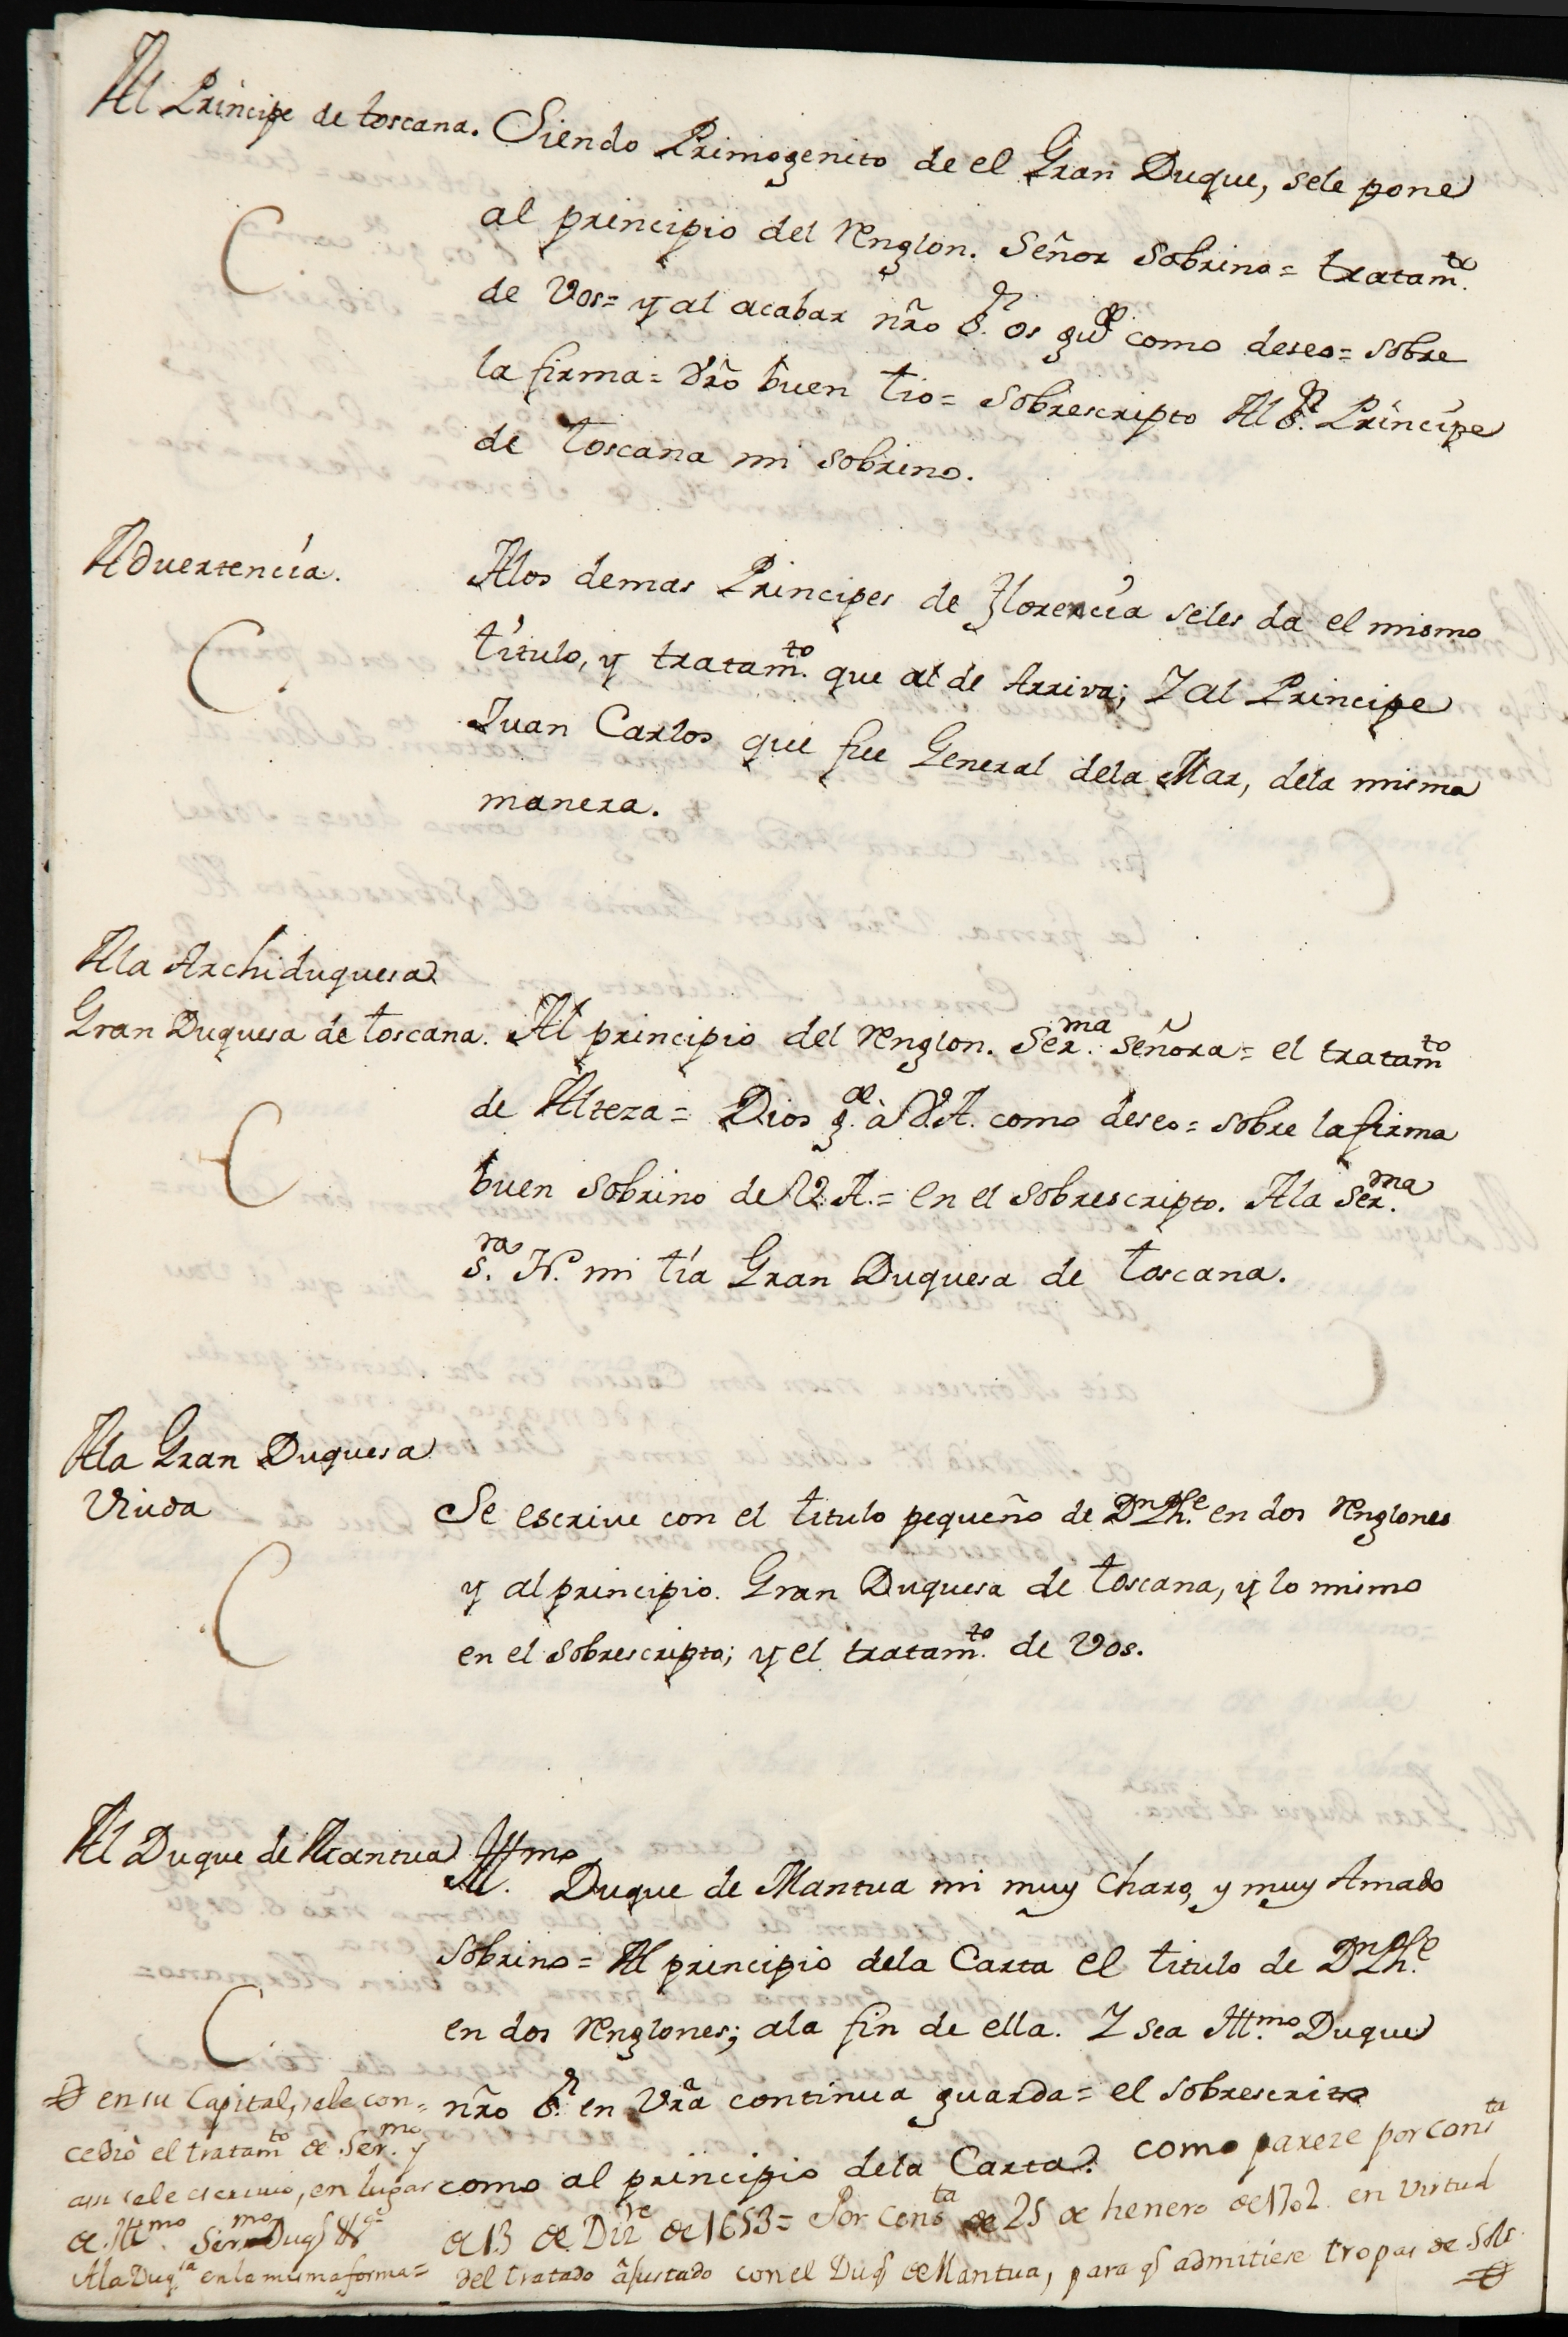 Al Principe de toscana. Siendo Primogenito de el Gran Duque, sele pone
al principio del renglon. Señor Sobrino= tratam.to
de Vos= y al acabar nro S.r os gu.de como deseo= sobre
la firma= Vro buen tio= Sobrescripto Al S.r Principe
de toscana mi sobrino.
Advertencia.
Alos demas Principes de Florencia seles da el mismo
titulo, y tratam.to que al de Arriva; Y al Principe
Juan Carlos que fue General dela Mar, dela misma
manera.
Ala Archiduquesa
Gran Duquesa de toscana. Al principio del renglon. Ser.ma Señora= el tratam.to
de Alteza= Dios g.de à V.A. como deseo= sobre la firma
buen sobrino de V.A.= en el sobrescripto. Ala Ser.ma
S.ra N. mi tía Gran Duquesa de toscana.
Ala Gran Duquesa
Viuda
Se escrive con el titulo pequeño de Dn Phe. en dos renglones
y al principio. Gran Duquesa de toscana, y lo mismo
en el sobrescripto; y el tratam.to de Vos.
Al Duque de Mantua
Ill.mo Duque de Mantua mi muy Charo, y muy Amado
sobrino= Al principio dela Carta el titulo de Dn Phe.
en dos renglones; ala fin de ella. Y sea Ill.mo Duque
nro S.r en Vra continua guarda= el sobrescrito
como al principio dela Carta. como pareze por cons.ta
de 13 de Diz.re de 1653= Por cons.ta de 25 de henero de 1702 en virtud
del tratado ajustado con el Duq de Mantua, para q admitiese tropas de SMs
en su Capital, sele con=
cediò el tratam.to de Ser.mo y
assi sele escrivio, en lugar
de Ill.mo Ser.mo Duq &.a
Ala Duq.sa en la misma forma=